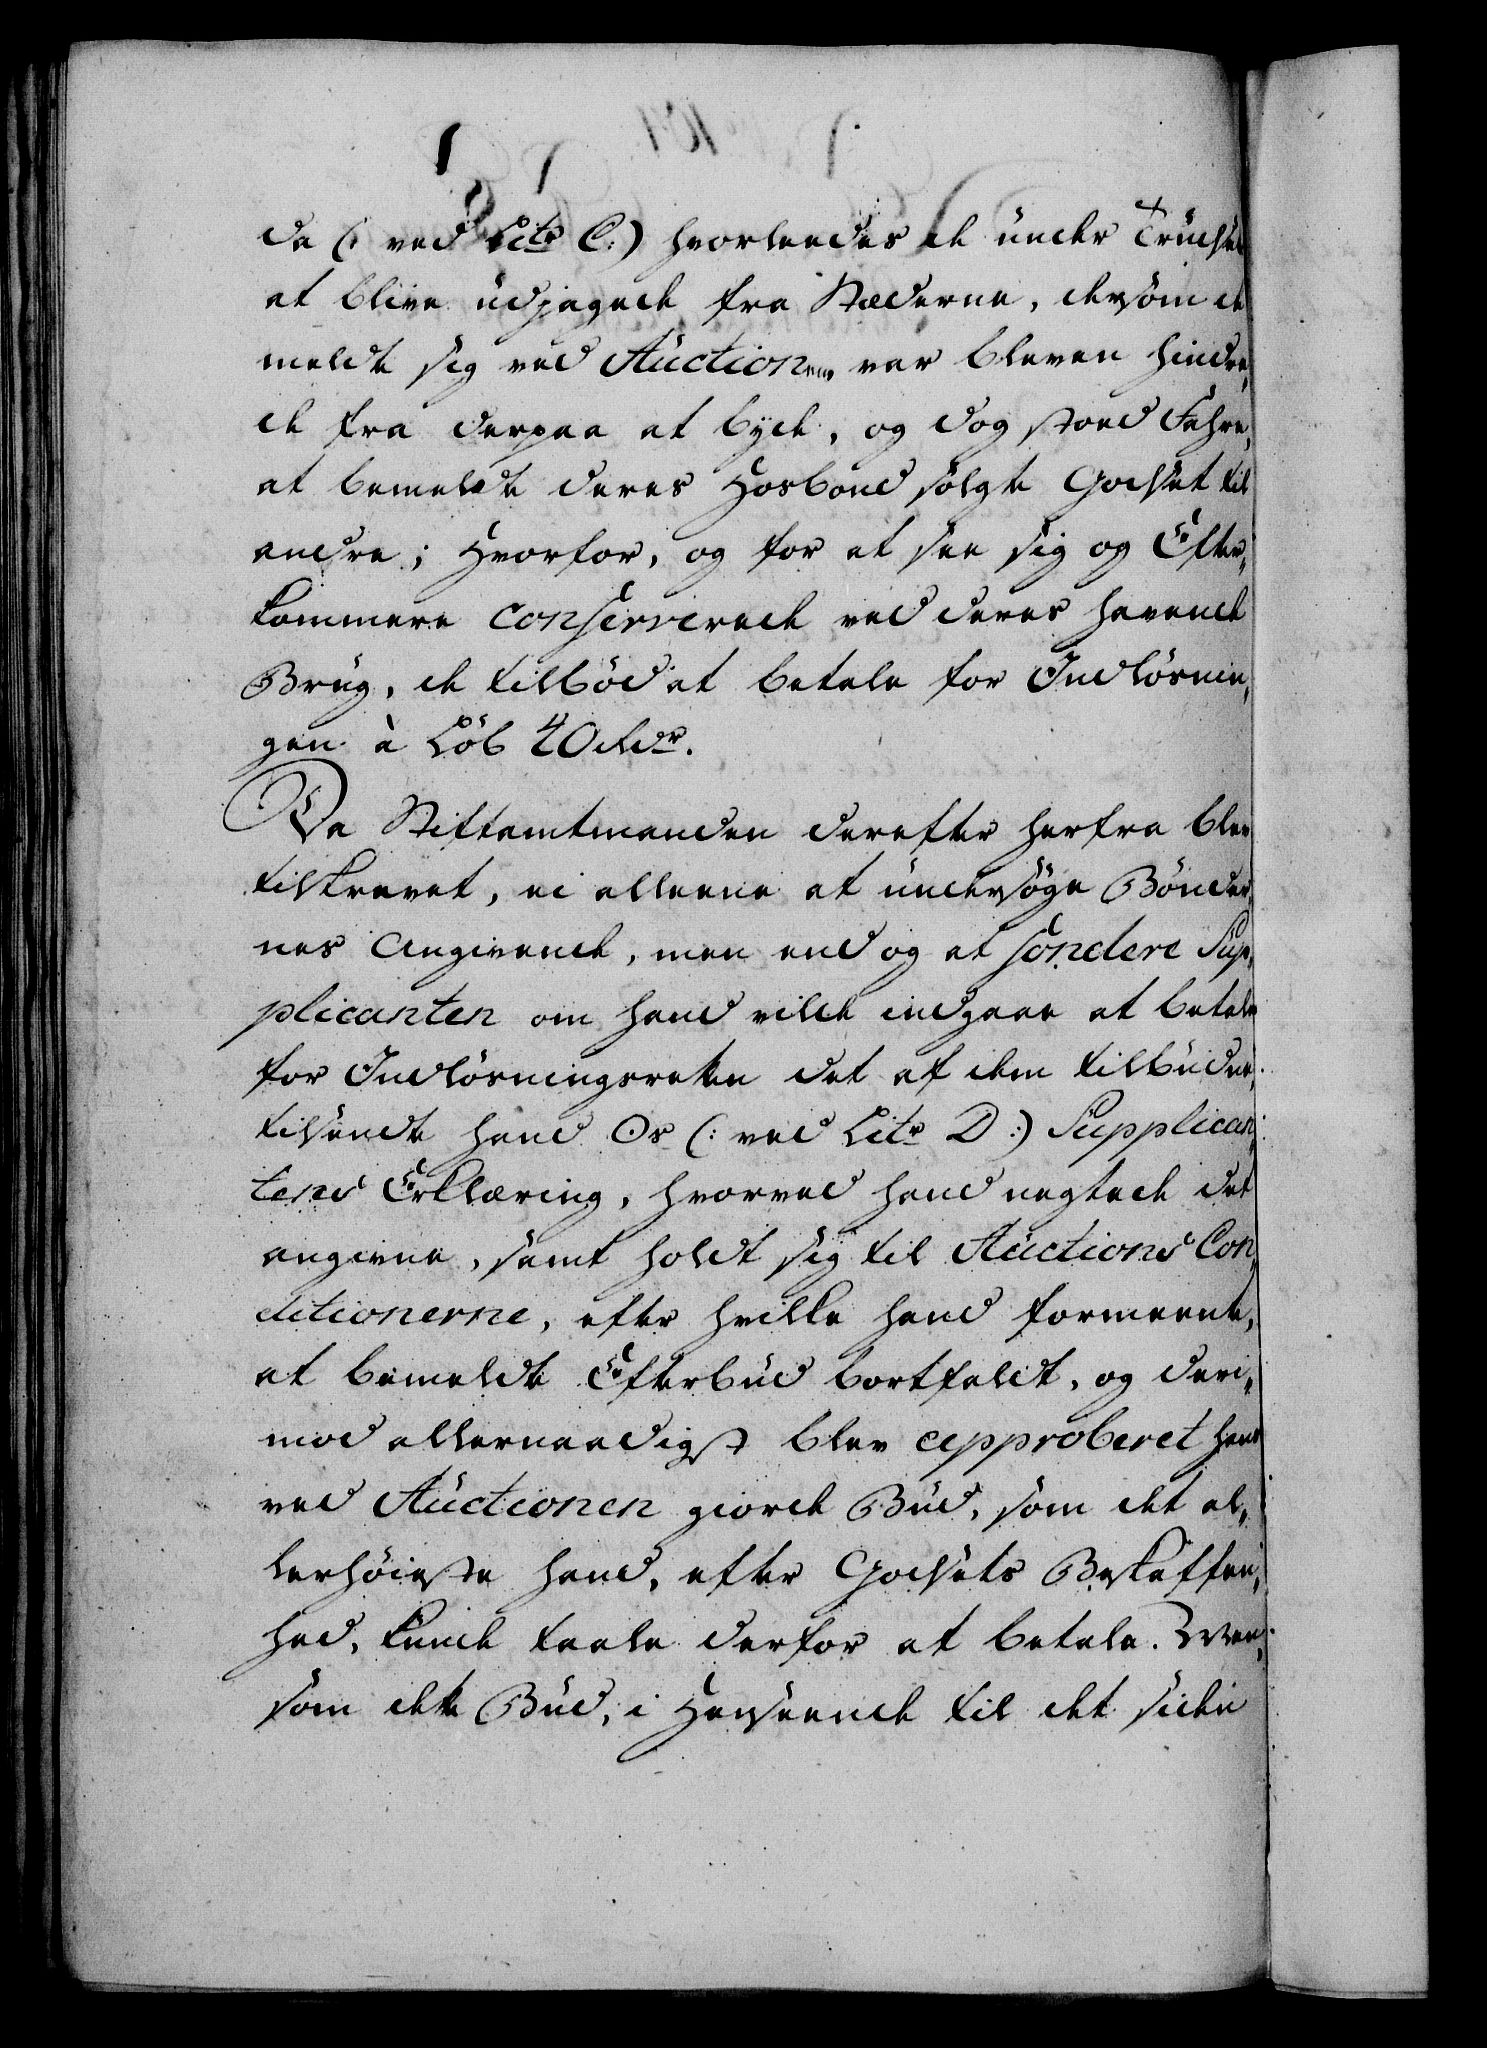 de (: ved Litr C:) hvorledes de under Trudsel
at blive udjagede fra Stæderne, dersom de
meldt sig ved Auctionen var bleven hindre,
de fra derpaa at byde, og dog stoed Fahre,
at bemeldte deres Hosbond solgte Godset til
andre; Hvorfor, og for at see sig og Efter,
kommere conserverede ved deres havende
Brug, de tilbød at betale for Indløsnin,
gen à Løb 40 Rdr.
Da Stiftamtmanden derefter herfra blev
tilskrevet, ei alleene at undersøge Bønder,
nes Angivende, men end og at sondere Sup,
plicanten om hand vilde indgaae at betale
for Indløsningsretten det af dem tilbudne,
tilsendte hand Os (: ved Litr D:) Supplican,
tens Erklæring, hvorved hand negtede det
angivne, samt holdt sig til Auctions Con,
ditionerne, efter hvilke hand formeente,
at bemeldte Efterbud bortfaldt, og deri,
mod allernaadigst blev approberet hans
ved Auctionen giorde Bud, som det al,
lerhøieste hand, efter Godsets Beskaffen,
hed, kunde taale derfor at betale. Men,
som dette Bud, i Henseende til det siden